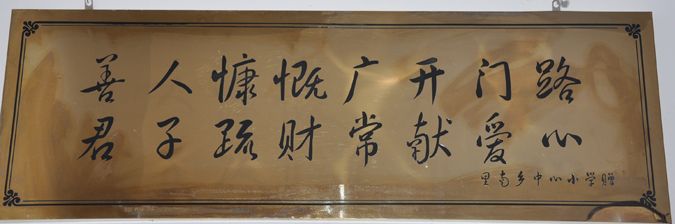 善人慷慨广开门路
君子疏财常献爱心
里南乡中心小学赠